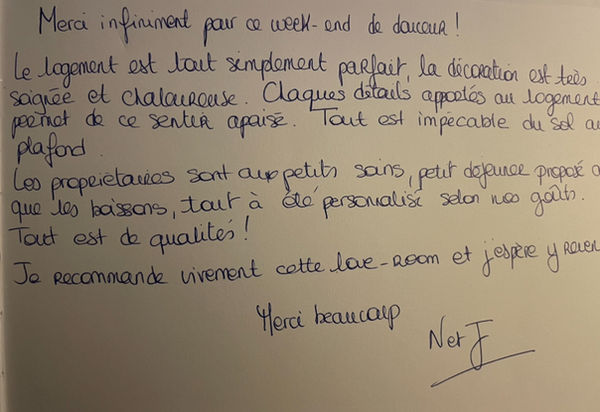 Merci infiniment pour ce week-end de douceur !
Le logement est tout simplement parfait, la décoration est très
soignée et chaleureuse. Chaques détails apportés au logement
permet de ce sentir apaisé. Tout est impécable du sol au
plafond.
Les propriétaires sont aux petits soins, petit déjeuner proposé
que les boissons, tout à été personnalisé selon nos goûts.
Tout est de qualités !
Je recommande vivement cette love-room et j'espère y reven
Merci beaucoup
N et J